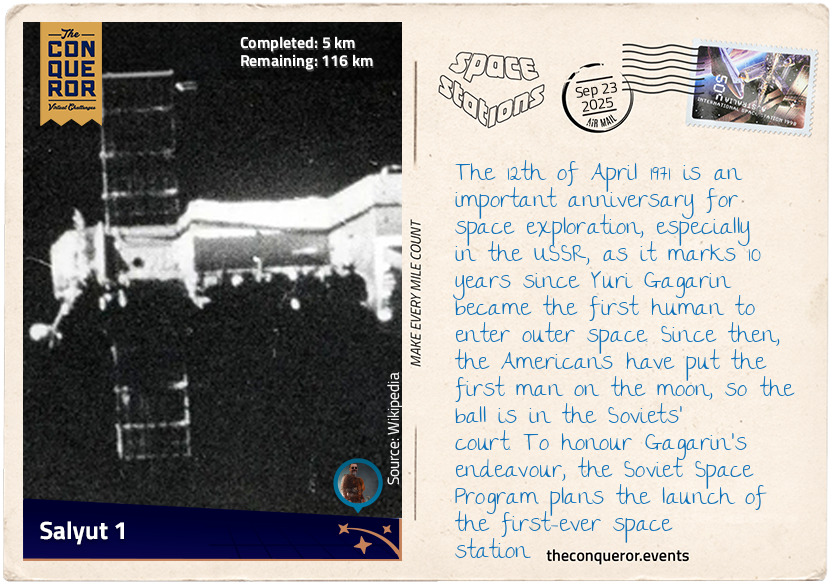 The
CON
QUE
ROR
Virtual Challenges
Completed: 5 km
Remaining: 116 km
Source: Wikipedia
Salyut 1
MAKE EVERY MILE COUNT
space
stations
Sep 23
2025
AIR MAIL
50c
AUSTRALIA
INTERNATIONAL SPACE STATION 1999
The 12th of April 1971 is an
important anniversary for
space exploration, especially
in the USSR, as it marks 10
years since Yuri Gagarin
became the first human to
enter outer space. Since then,
the Americans have put the
first man on the moon, so the
ball is in the Soviets'
court. To honour Gagarin's
endeavour, the Soviet Space
Program plans the launch of
the first-ever space
station
theconqueror.events